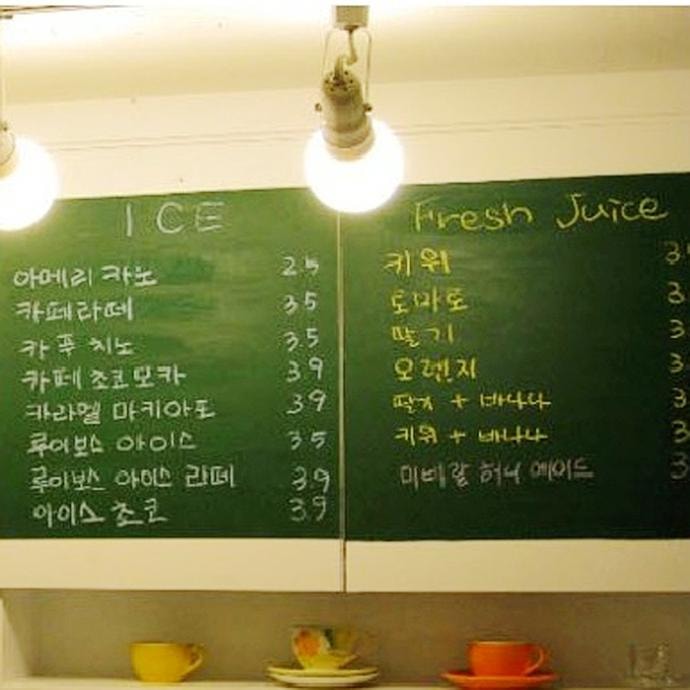 ICE
아메리카노 25
카페라떼 35
카푸치노 35
카페쵸코모카 39
카라멜 마키아또 39
루이보스 아이스 35
루이보스 아이스 라떼 39
아이스쵸코 39
Fresh Juice
키위 3
토마토 3
딸기 3
오렌지 3
딸기 + 바나나 3
키위 + 바나나 3
미네랄 허니 에이드 3